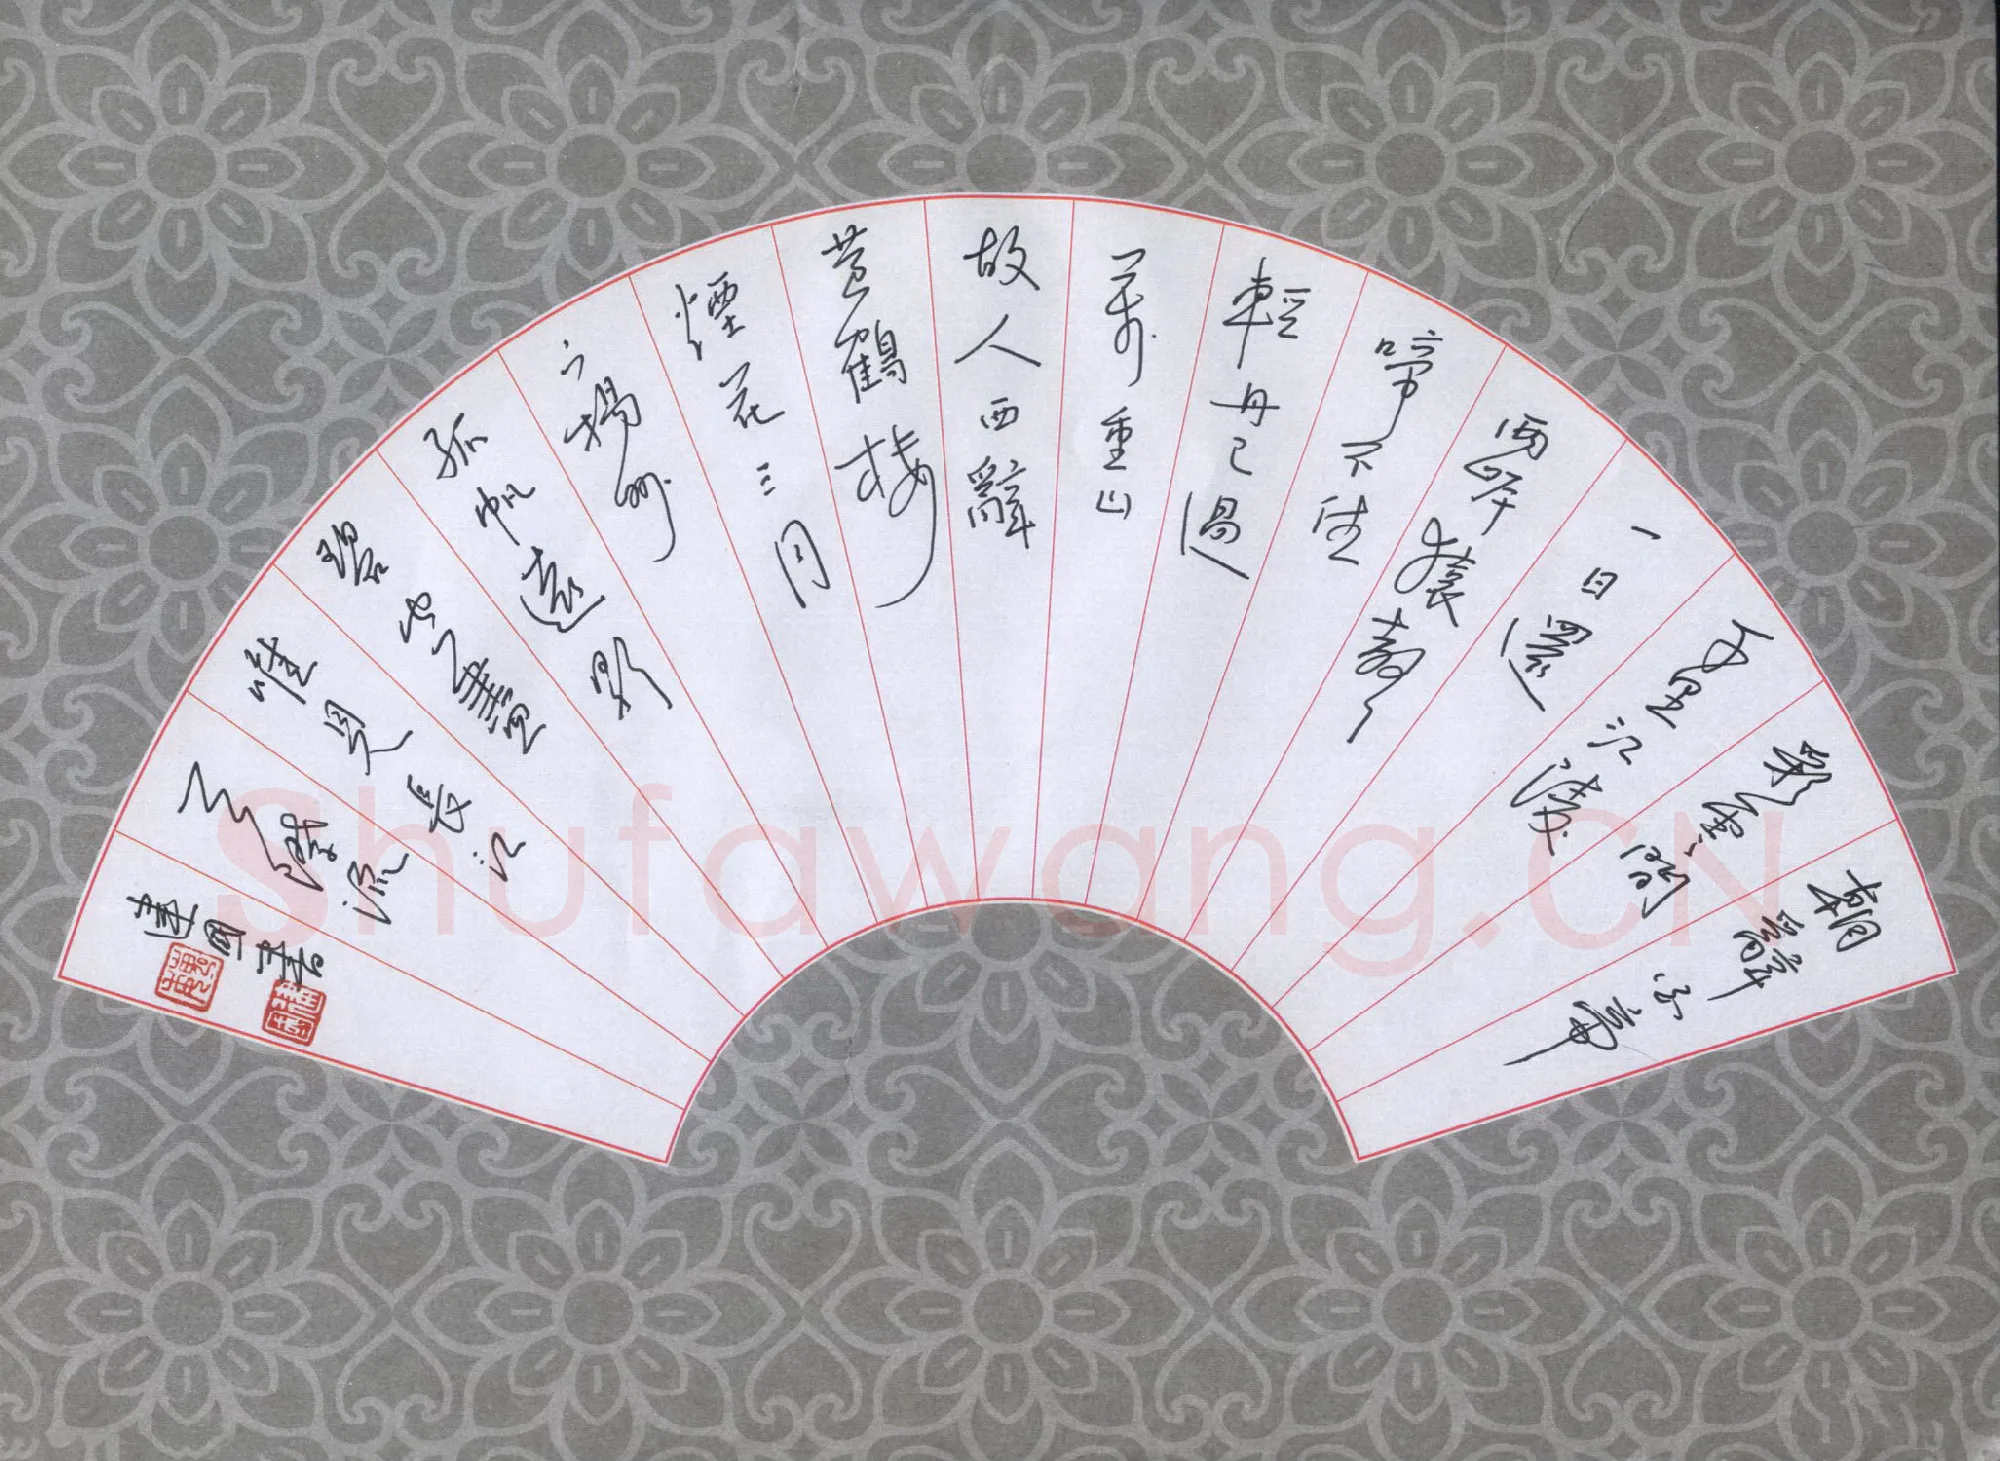 朝辭白帝
彩雲間
千里江陵
一日還
兩岸猿聲
啼不住
輕舟已過
萬重山
故人西辭
黃鶴樓
煙花三月
下揚州
孤帆遠影
碧空盡
唯見長江
天際流
建國書
Shufawang.CN